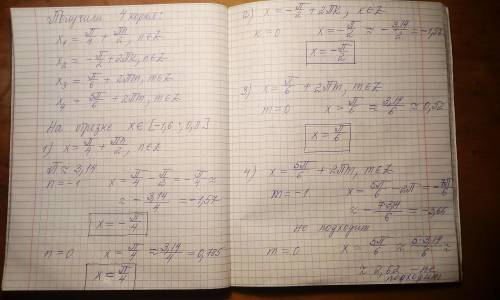 Получили 4 корня:
x₁ = π/4 + πn/2, n∈Z
x₂ = -π/2 + 2πk, k∈Z
x₃ = π/6 + 2πm, m∈Z
x₄ = 5π/6 + 2πm, m∈Z
На отрезке x∈[-1,6; 0,7]
1) x = π/4 + πn/2, n∈Z
π ≈ 3,14
n = -1 x = π/4 - π/2 = -π/4 ≈
≈ -3,14/4 = -1,57
x = -π/4
n = 0 x = π/4 ≈ 3,14/4 = 0,785
x = π/4
2) x = -π/2 + 2πk, k∈Z
k = 0 x = -π/2 ≈ -3,14/2 = -1,57
x = -π/2
3) x = π/6 + 2πm, m∈Z
m = 0 x = π/6 ≈ 3,14/6 ≈ 0,52
x = π/6
4) x = 5π/6 + 2πm, m∈Z
m = -1 x = 5π/6 - 2π = -7π/6
≈ -7·3,14/6 = -3,66
не подходит
m = 0 x = 5π/6 ≈ 5·3,14/6 ≈
≈ 2,62 - не
подходит